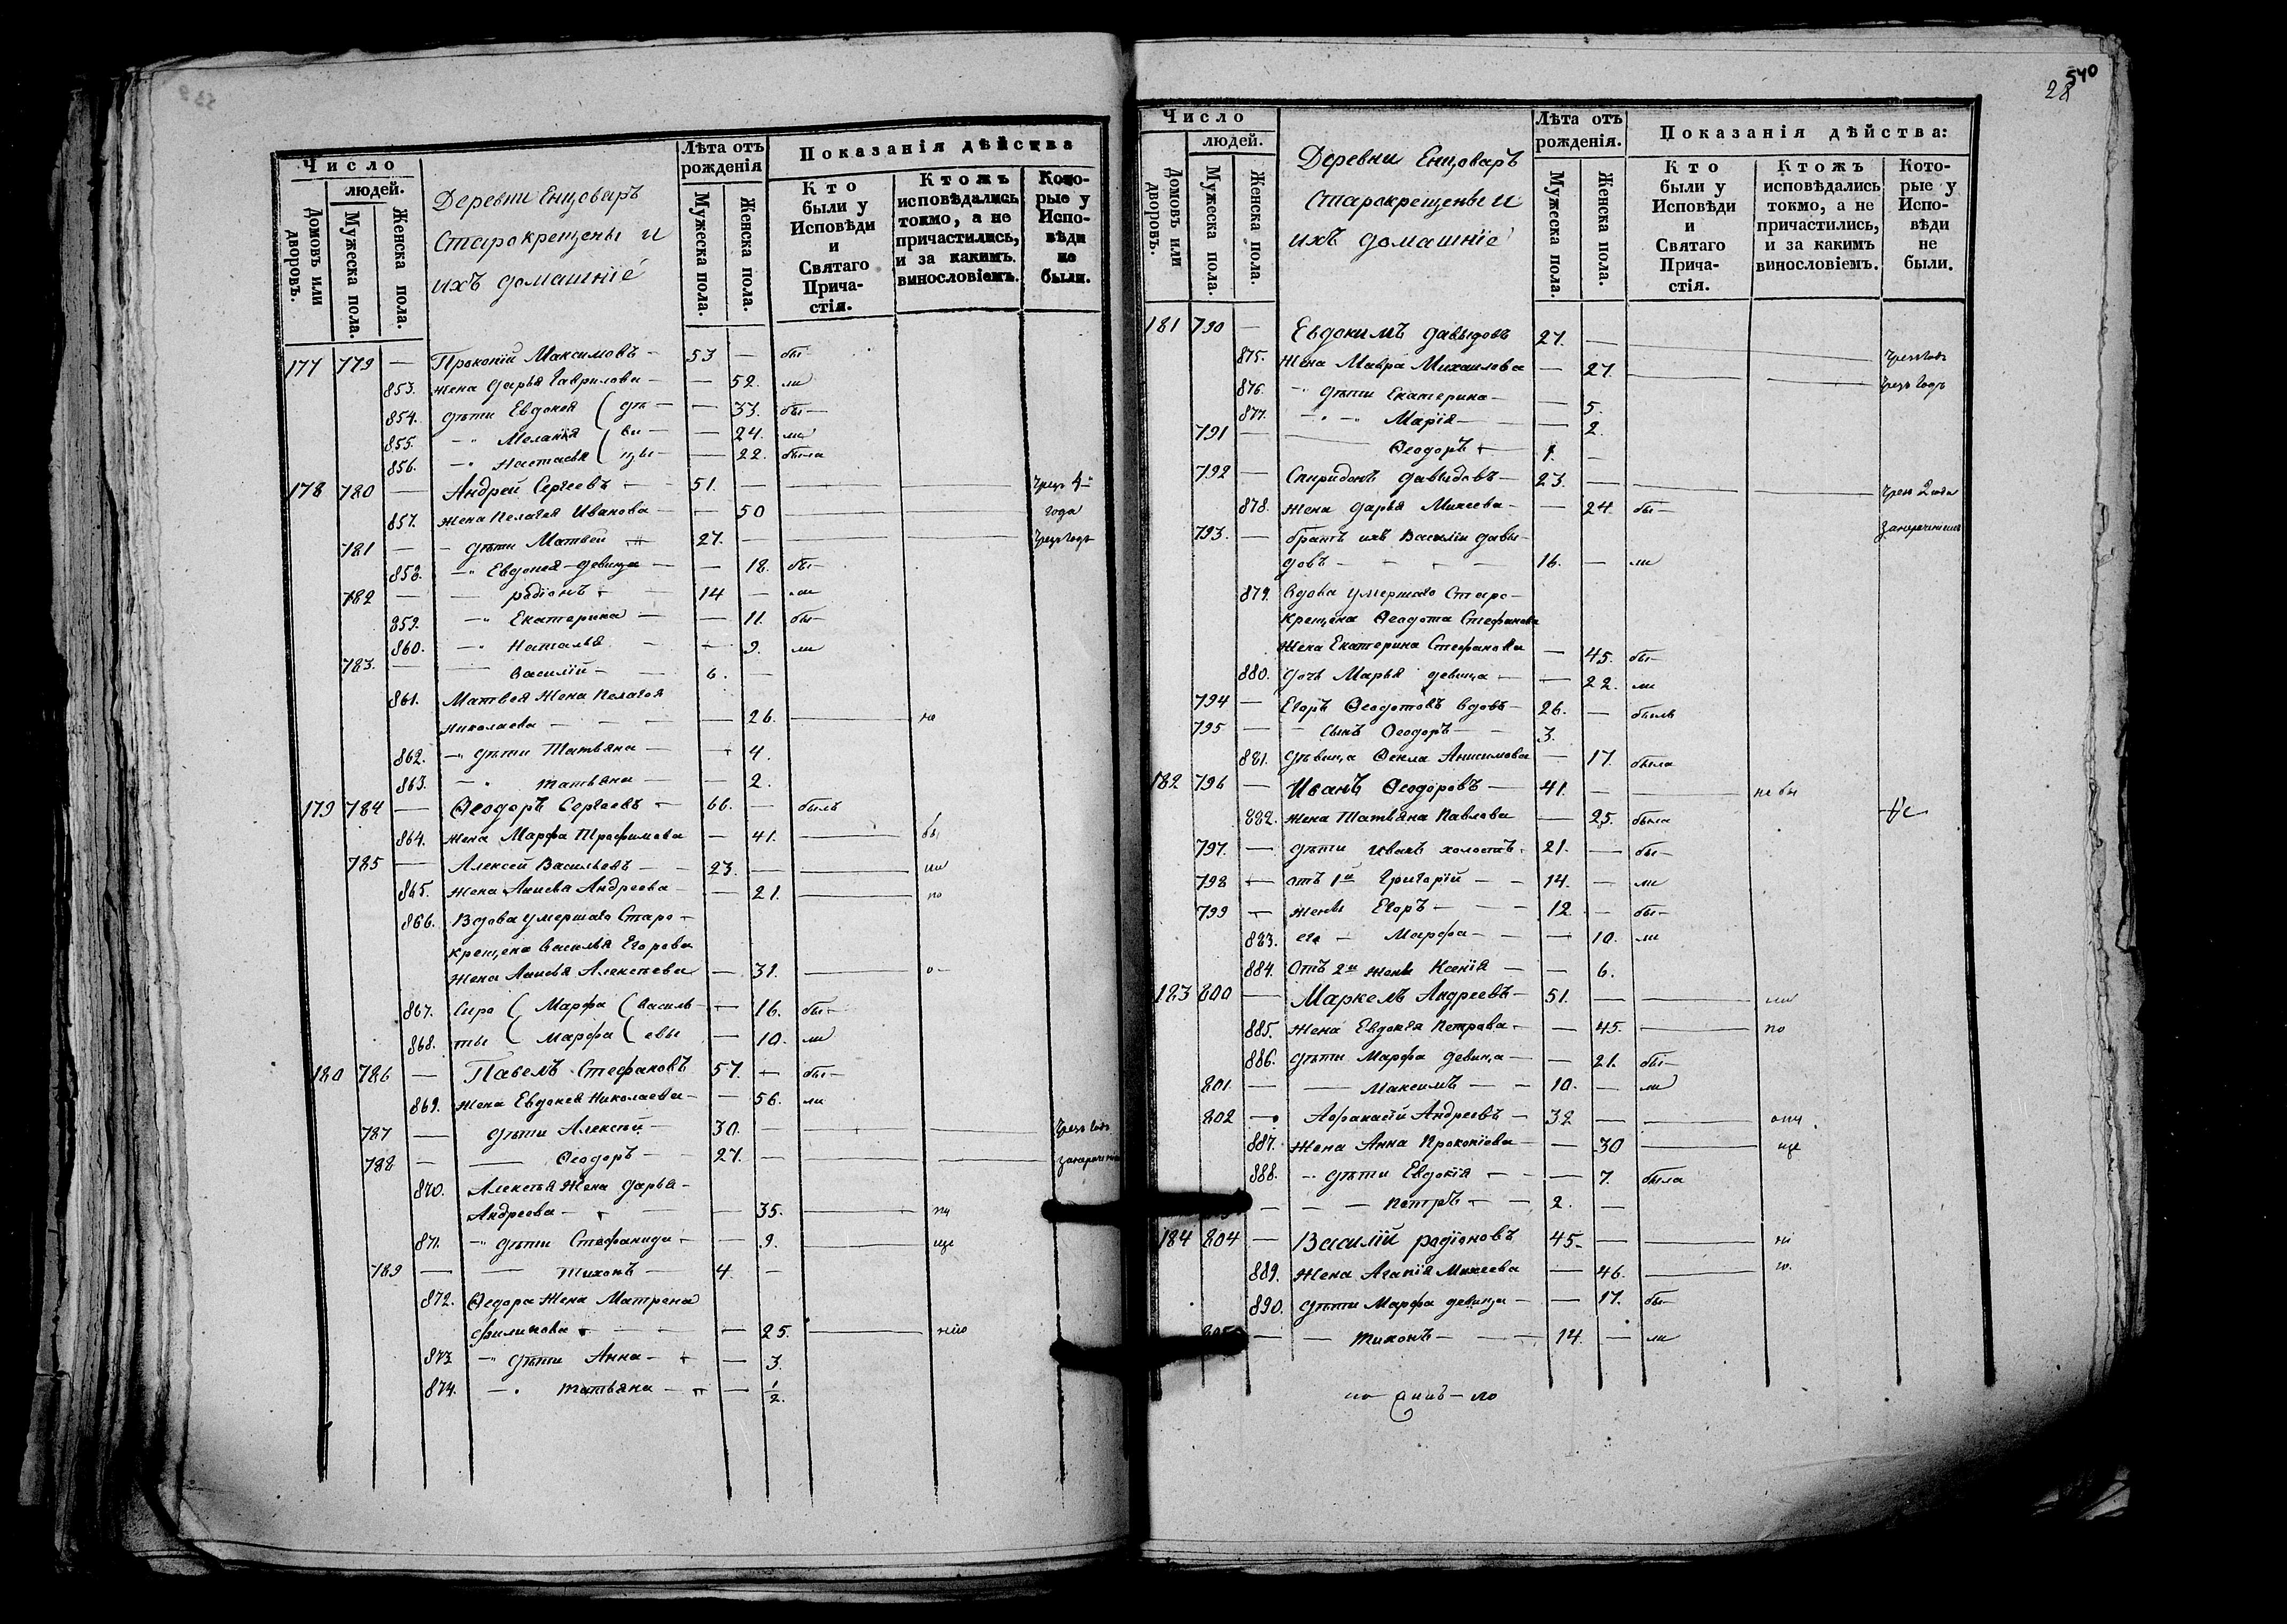 Число
людей.
Домовъ или дворовъ.
Мужеска пола.
Женска пола.
Деревни Енцоваръ
Старокрещены и
ихъ домашніе
Лѣта отъ рожденія
Мужеска пола.
Женска пола.
Показанія дѣйства
Кто были у Исповѣди и Святаго Причастія.
Ктожъ исповѣдались токмо, а не причастились, и за какимъ винословіемъ.
Которые у Исповѣди не были.
177 779 — Прокопій Максимовъ — 53 — бы
853. жена Дарья Гаврилова — — 52. ли
854. дѣти Евдокея ( дѣ — — 33. бы —
855. —" Меланія ( ви — — 24. ли
856. —" Настасья ( цы — — 22. была
178 780 — Андрей Сергеевъ — 51. — — — чрезъ 4
857. жена Пелагея Иванова — — 50 года
781 — — дѣти Матвей 27. — — — чрезъ годъ
858. —" Евдокея девица — — 18. бы —
782 — — родіонъ — 14 — ли
859. —" Екатерина — — 11. бы —
860. —" Наталья — — 9. ли
783. — — Василій — 6. —
861. Матвея жена Пелагея
Николаева — — — — 26. —
862. —" дѣти Татьяна — — 4.
863. —" татьяна — — 2.
179 784 — Ѳеодоръ Сергеевъ — 66. — былъ
864. жена Марфа Трофимова — 41. — бы
785 — Алексей Васильевъ — 23. — —
865. жена Анисья Андреева — — 21. — по
866. Вдова умершаго Старо —
крещена Василья Егорова
жена Анисья Алексѣева — 31. — о —
867. Сиро ( Марфа ( Василь — — 16. бы —
868. ты ( Марфа ( евы — 10. ли
180 786 — Павелъ Стефановъ 57. — бы —
869. жена Евдокея Николаева — — 56. ли
787 — дѣти Алексѣй — 30. — — — чрезъ годъ
788 — — Ѳеодоръ — 27. — — —
870. Алексѣя жена Дарья —
Андреева — — — 35. —
871. —" дѣти Стефанида — — 9. — ще
789 — — тихонъ — 4. —
872. Ѳедора жена Матрена
филипова — — — 25. — ніе
873 —" дѣти Анна — — 3.
874. —" татьяна — — 1/2.
540
28
Число
людей.
Домовъ или дворовъ.
Мужеска пола.
Женска пола.
Деревни Енцоваръ
Старокрещены и
ихъ домашніе
Лѣта отъ рожденія.
Мужеска пола.
Женска пола.
Показанія дѣйства:
Кто были у Исповѣди и Святаго Причастія.
Ктожъ исповѣдались токмо, а не причастились, и за какимъ винословіемъ.
Которые у Исповѣди не были.
181 790 — Евдокимъ Давыдовъ 27. — — — чрезъ годъ
875. жена Мавра Михаилова — 27. — — чрезъ годъ
876. —" дѣти Екатерина — — 5.
877. —" — Марія — — 2.
791 — — Ѳеодоръ — 1. —
792 — Спиридонъ Давыдовъ — 23. — — — чрезъ 2 года
878. жена Дарья Михеева — — 24. бы —
793. — братъ ихъ Василій Давы —
довъ — — — — 16. — ли
879. Вдова умершаго Старо —
крещена Ѳеодота Стефанова
жена Екатерина Стефанова — 45. бы —
880. дочь Марья девица — — 22. ли
794 — Егоръ Ѳеодотовъ вдовъ — 26. — былъ
795 — — Сынъ Ѳеодоръ — 3.
881. дѣвица Ѳекла Анисимова — 17. была
182 796 — Иванъ Ѳеодоровъ — 41. — — не бы
882. жена Татьяна Павлова — 25. была
797. — дѣти Иванъ холостъ. 21. — бы —
798 — отъ 1й Григорій — — 14. — ли
799 — жены Егоръ — — — 12 — бы —
883. его — Марфа — — — 10. ли
884. отъ 2й жены Ксенія — — 6.
183 800 — Маркелъ Андреевъ — 51. — — ли
885. жена Евдокія Петрова — — 45. — по
886. дѣти Марфа девица — — 21. бы —
801. — — Максимъ — — 10. — ли
802 — Аѳанасій Андреевъ — 32 — —
887. жена Анна Прокопіева — — 30 — ще
888. —" дѣти Евдокія — — — 7. была
— — — петръ — — 2. —
184 804 — Василій родіоновъ 45 — — — ні
889. жена Агапія Михеева — 46. —
890. дѣти Марфа девица — — 17. бы —
805 — — тихонъ — — — 14. — ли